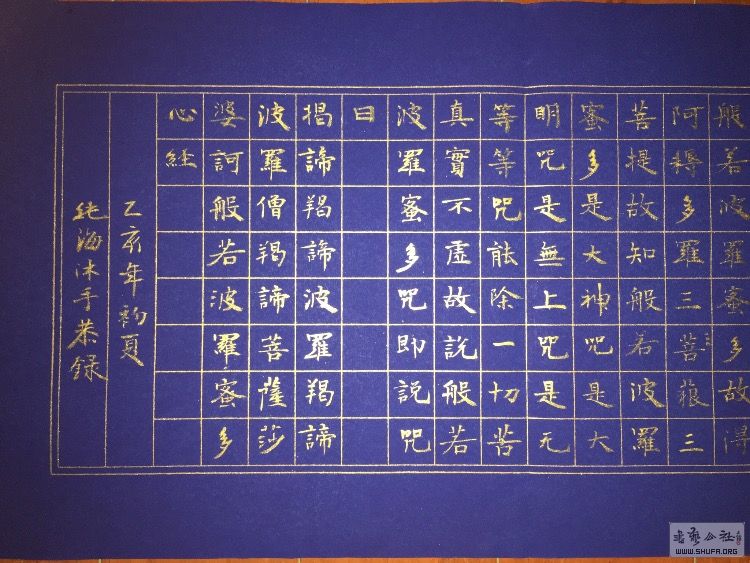 般若波羅蜜多故得
阿耨多羅三菩藐三
菩提故知般若波羅
蜜多是大神咒是大
明咒是無上咒是无
等等咒能除一切苦
真實不虛故說般若
波羅蜜多咒即說咒
曰
揭諦羯諦波羅羯諦
波羅僧羯諦菩薩莎
婆訶般若波羅蜜多
心経
乙亥年初夏
純海沐手恭録
書藝公社
WWW.SHUFA.ORG